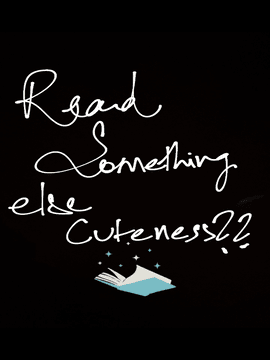 Read
Something
else
Cuteness??